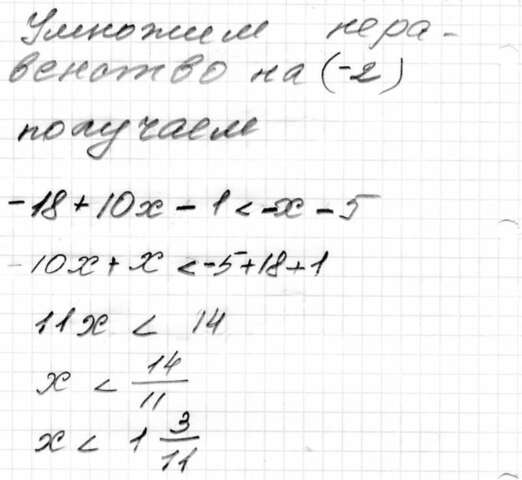 Умножим нера-
венство на (-2)
получаем
-18+10x-1<-x-5
-10x+x<-5+18+1
11x < 14
x < 14/11
x < 1 3/11